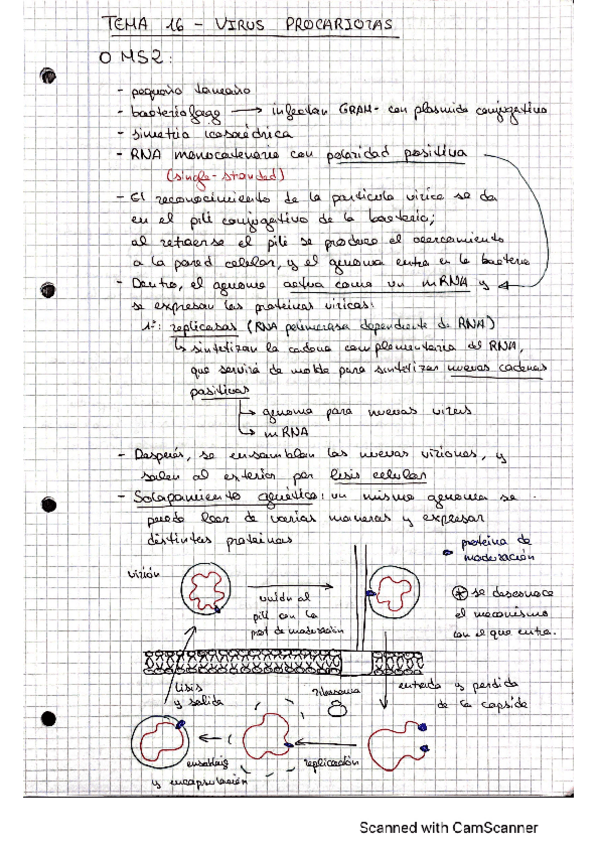 TEMA 16 - VIRUS PROCARIOTAS
O MS2:
- pequeño tamaño
- bacteriofago → infectan GRAM- con plasmido conjugativo
- simetria icosaédrica
- RNA monocatenario con polaridad positiva
(single-standed)
- El reconocimiento de la particula virica se da
en el pili conjugativo de la bacteria;
al retraerse el pili se produce el acercamiento
a la pared celular, y el genoma entra en la bacteria
- Dentro, el genoma actua como un mRNA y
se expresan las proteinas viricas:
1º: replicasas (RNA polimerasa dependiente de RNA)
↳ sintetizan la cadena complementaria del RNA,
que servirá de molde para sintetizar nuevas cadenas
positivas
↳ genoma para nuevos virus
↳ mRNA
- Después, se ensamblan los nuevos viriones, y
salen al exterior por lisis celular
- Solapamiento genético: un mismo genoma se
puede leer de varias maneras y expresar
distintas proteinas
proteina de
maduración
virión
unión al
pili con la
prot de maduración
* se desconoce
el mecanismo
con el que entra.
lisis
y salida
ribosoma
entrada y perdida
de la capside
ensamblaje
y encapsulación
replicación
Scanned with CamScanner